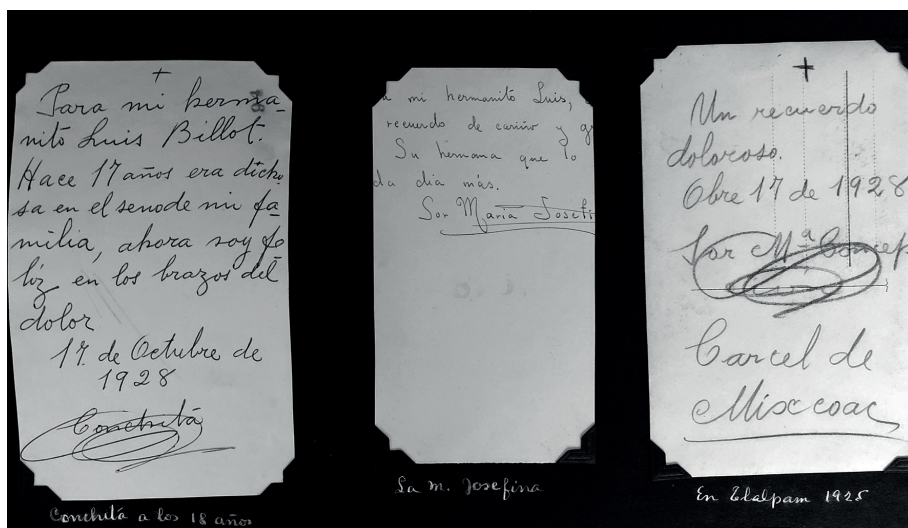 +
Para mi herma-
nito Luis Billot.
Hace 17 años era dicho
sa en el seno de mi fa-
milia, ahora soy fe
líz en los brazos del
dolor
17. de Octubre de
1928
Conchita
Conchita a los 18 años
a mi hermanito Luis,
recuerdo de cariño y g
Su hermana que lo
da dia más.
Sor María Josefi
La M. Josefina
+
Un recuerdo
doloroso.
Obre 17 de 1928
Sor Mª Concep
ción
Carcel de
Mixcoac
En Tlalpam 1928